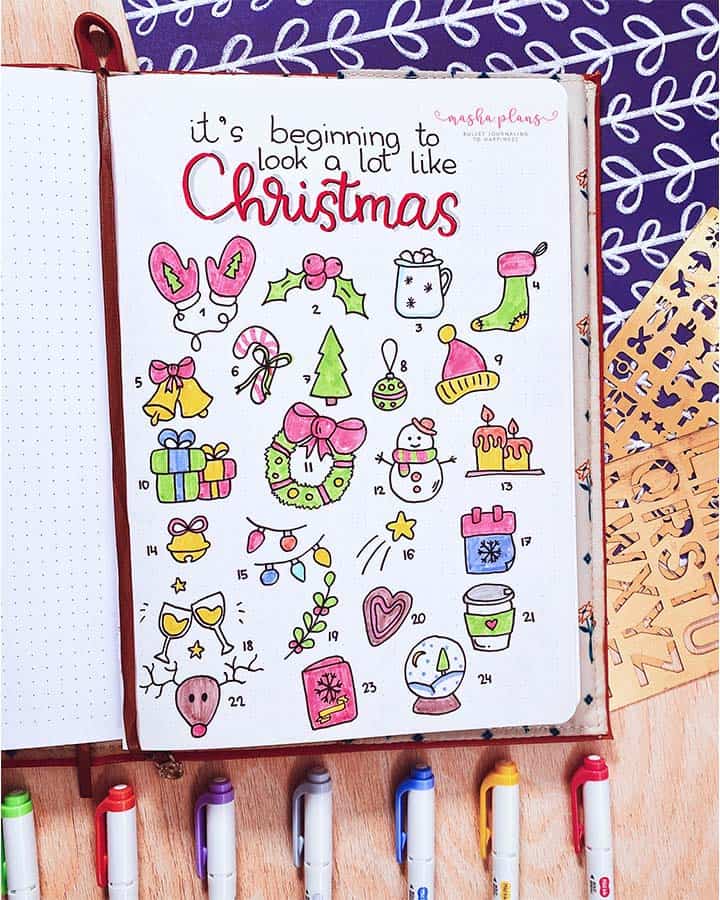 it's beginning to
look a lot like
Christmas
masha plans
BULLET JOURNALING
TO HAPPINESS
1
2
3
4
5
6
7
8
9
10
11
12
13
14
15
16
17
18
19
20
21
22
23
24